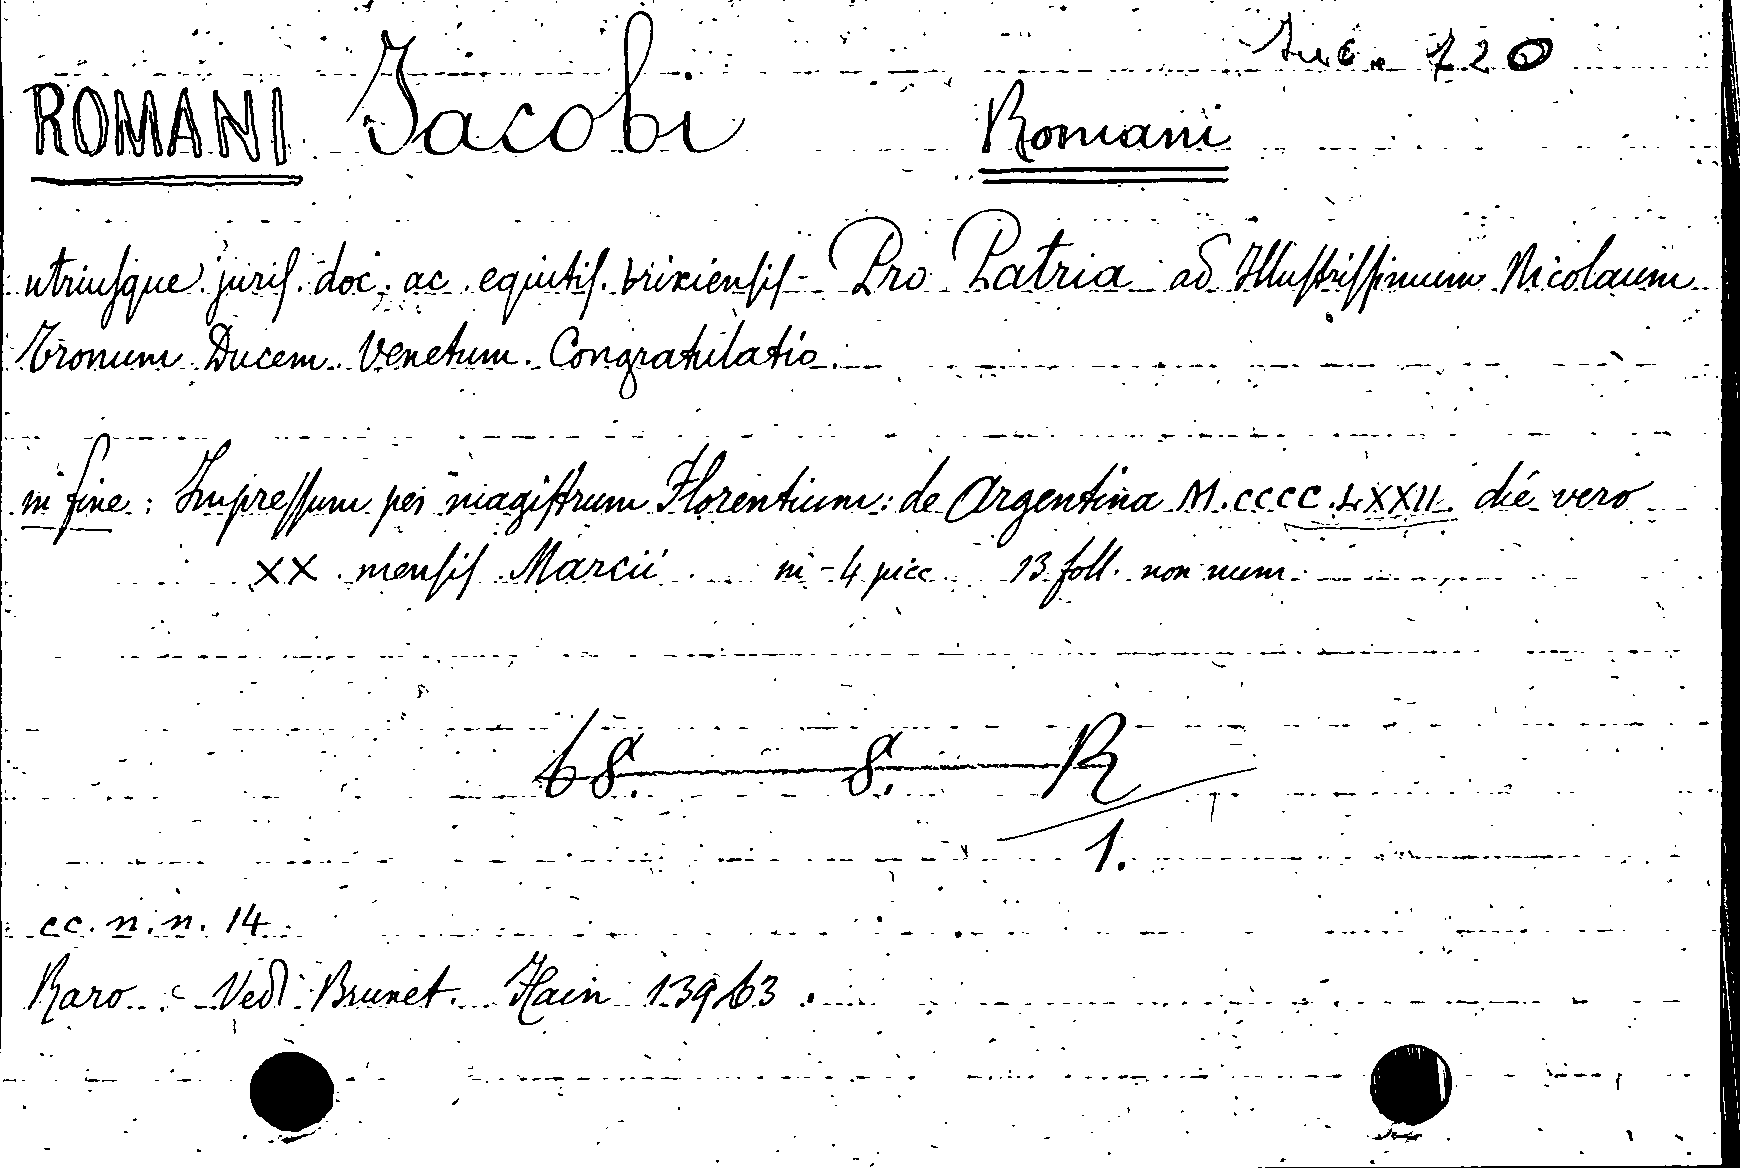 Inc. 720
ROMANI Jacobi Romani
utriusque juris. doc. ac equitis. brixiensis - Pro Patria ad Illustrissimum Nicolaum
Tronum Ducem Venetum. Congratulatio.
in fine: Impressum per magistrum Florentium: de Argentina M.CCCC.LXXII. die vero
XX mensis Marcii in-4 picc 13 foll. non num.
68. 8. R
1.
cc. n. n. 14
Raro: Vedi Brunet. Hain 13963.